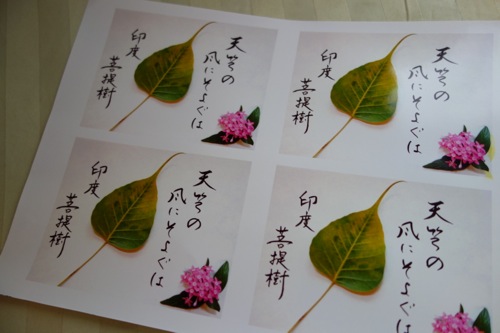 天竺の
風にそよぐは
印度
菩提樹
天竺の
風にそよぐは
印度
菩提樹
天竺の
風にそよぐは
印度
菩提樹
天竺の
風にそよぐは
印度
菩提樹